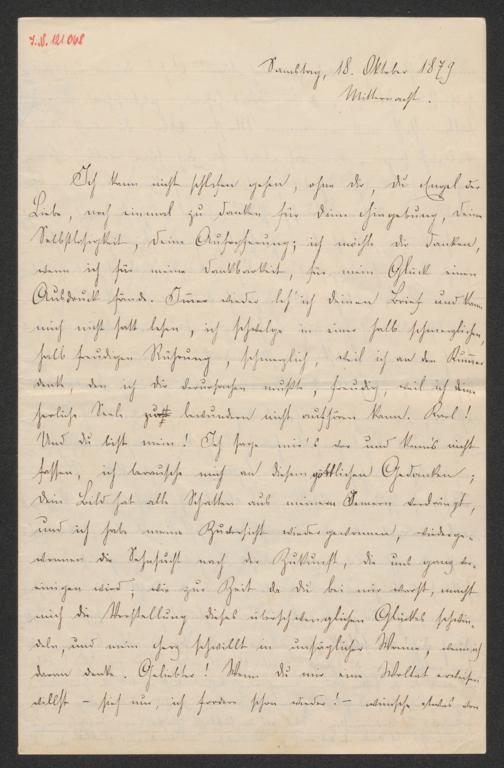 I.N. 121.068
Samstag, 18. Oktober 1879
Mitternacht.
Ich kann nicht schlafen gehen, ohne Dir, Du Engel der
Liebe, noch einmal zu danken für Deine Hingebung, Deine
Selbstlosigkeit, Deine Aufopferung; ich möchte Dir danken,
wenn ich für meine Dankbarkeit, für mein Glück einen
Ausdruck fände. Immer wieder les' ich Deinen Brief und kann
mich nicht satt lesen, ich schwelge in einer halb schmerzlichen,
halb freudigen Rührung, schmerzlich, weil ich an den Kummer
denke, den ich Dir verursachen mußte, freudig, weil ich Deine
herrliche Seele bewundern nicht aufhören kann. Karl!
Und Du bist mein! Ich sage mir's vor und kann's nicht
fassen, ich berausche mich an diesem göttlichen Gedanken;
Dein Bild hat alle Schatten aus meinem Innern verdrängt,
und ich habe meine Zuversicht wiedergewonnen, wiederge-
wonnen die Sehnsucht nach der Zukunft, die uns ganz ver-
einigen wird; wie zur Zeit da Du bei mir warst, macht
mich die Vorstellung dieses überschwenglichen Glückes schwin-
deln, und mein Herz schwillt in unsäglicher Wonne, wenn ich
daran denke. Geliebter! Wenn Du mir eine Wohltat erweisen
willst – sieh nur, ich fordere schon wieder! – wünsche etwas von